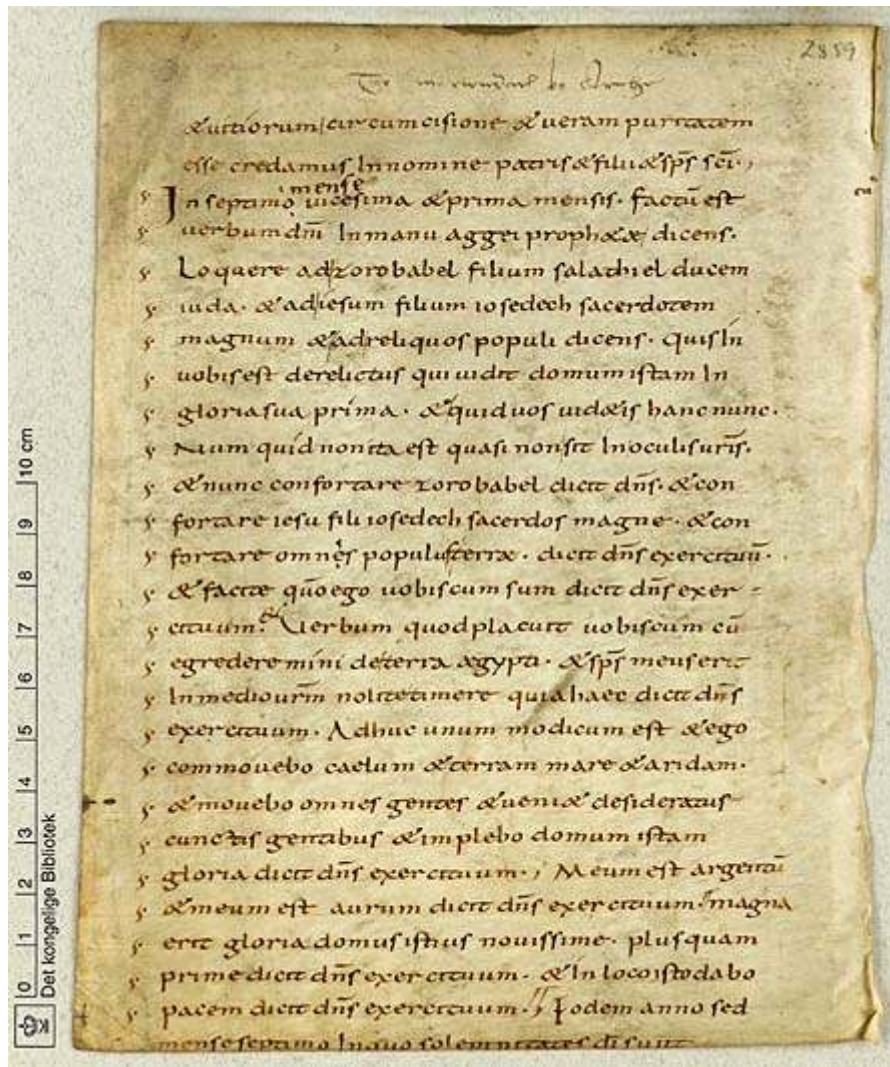 2859
&uitiorum circumcisione & ueram puritatem
esse credamus In nomine patris & filii & sp̄s sc̄i.
mense
In septimo uicesima & prima mensis. factū est
uerbum dn̄i In manu aggei proph&ae dicens.
Loquere ad zorobabel filium salathiel ducem
iuda. & ad iesum filium iosedech sacerdotem
magnum & ad reliquos populi dicens. quis In
uobis est derelictus qui uidit domum istam In
gloria sua prima. & quid uos uid&is hanc nunc.
Num quid non ita est quasi non sit In oculis ur̄is.
& nunc confortare zorobabel dicit dn̄s. & con
fortare iesu fili iosedech sacerdos magne. & con
fortare omnes populus terrae. dicit dn̄s exercituū.
& facite qūo ego uobiscum sum dicit dn̄s exer-
cituum. Uerbum quod placuit uobiscum cū
egrederemini de terra aegypti. & sp̄s meus erit
In medio ur̄m nolite timere quia haec dicit dn̄s
exercituum. Adhuc unum modicum est & ego
commouebo caelum & terram mare & aridam.
& mouebo omnes gentes & ueni& desideratus
cunctis gentibus & implebo domum istam
gloria dicit dn̄s exercituum. Meum est argentū
& meum est aurum dicit dn̄s exercituum. magna
erit gloria domus istius nouissime. plusquam
prime dicit dn̄s exercituum. & In loco isto dabo
pacem dicit dn̄s exercituum. Eodem anno sed
mense septimo In quo solemnitates d̄i sunt
0 1 2 3 4 5 6 7 8 9 10 cm
Det kongelige Bibliotek